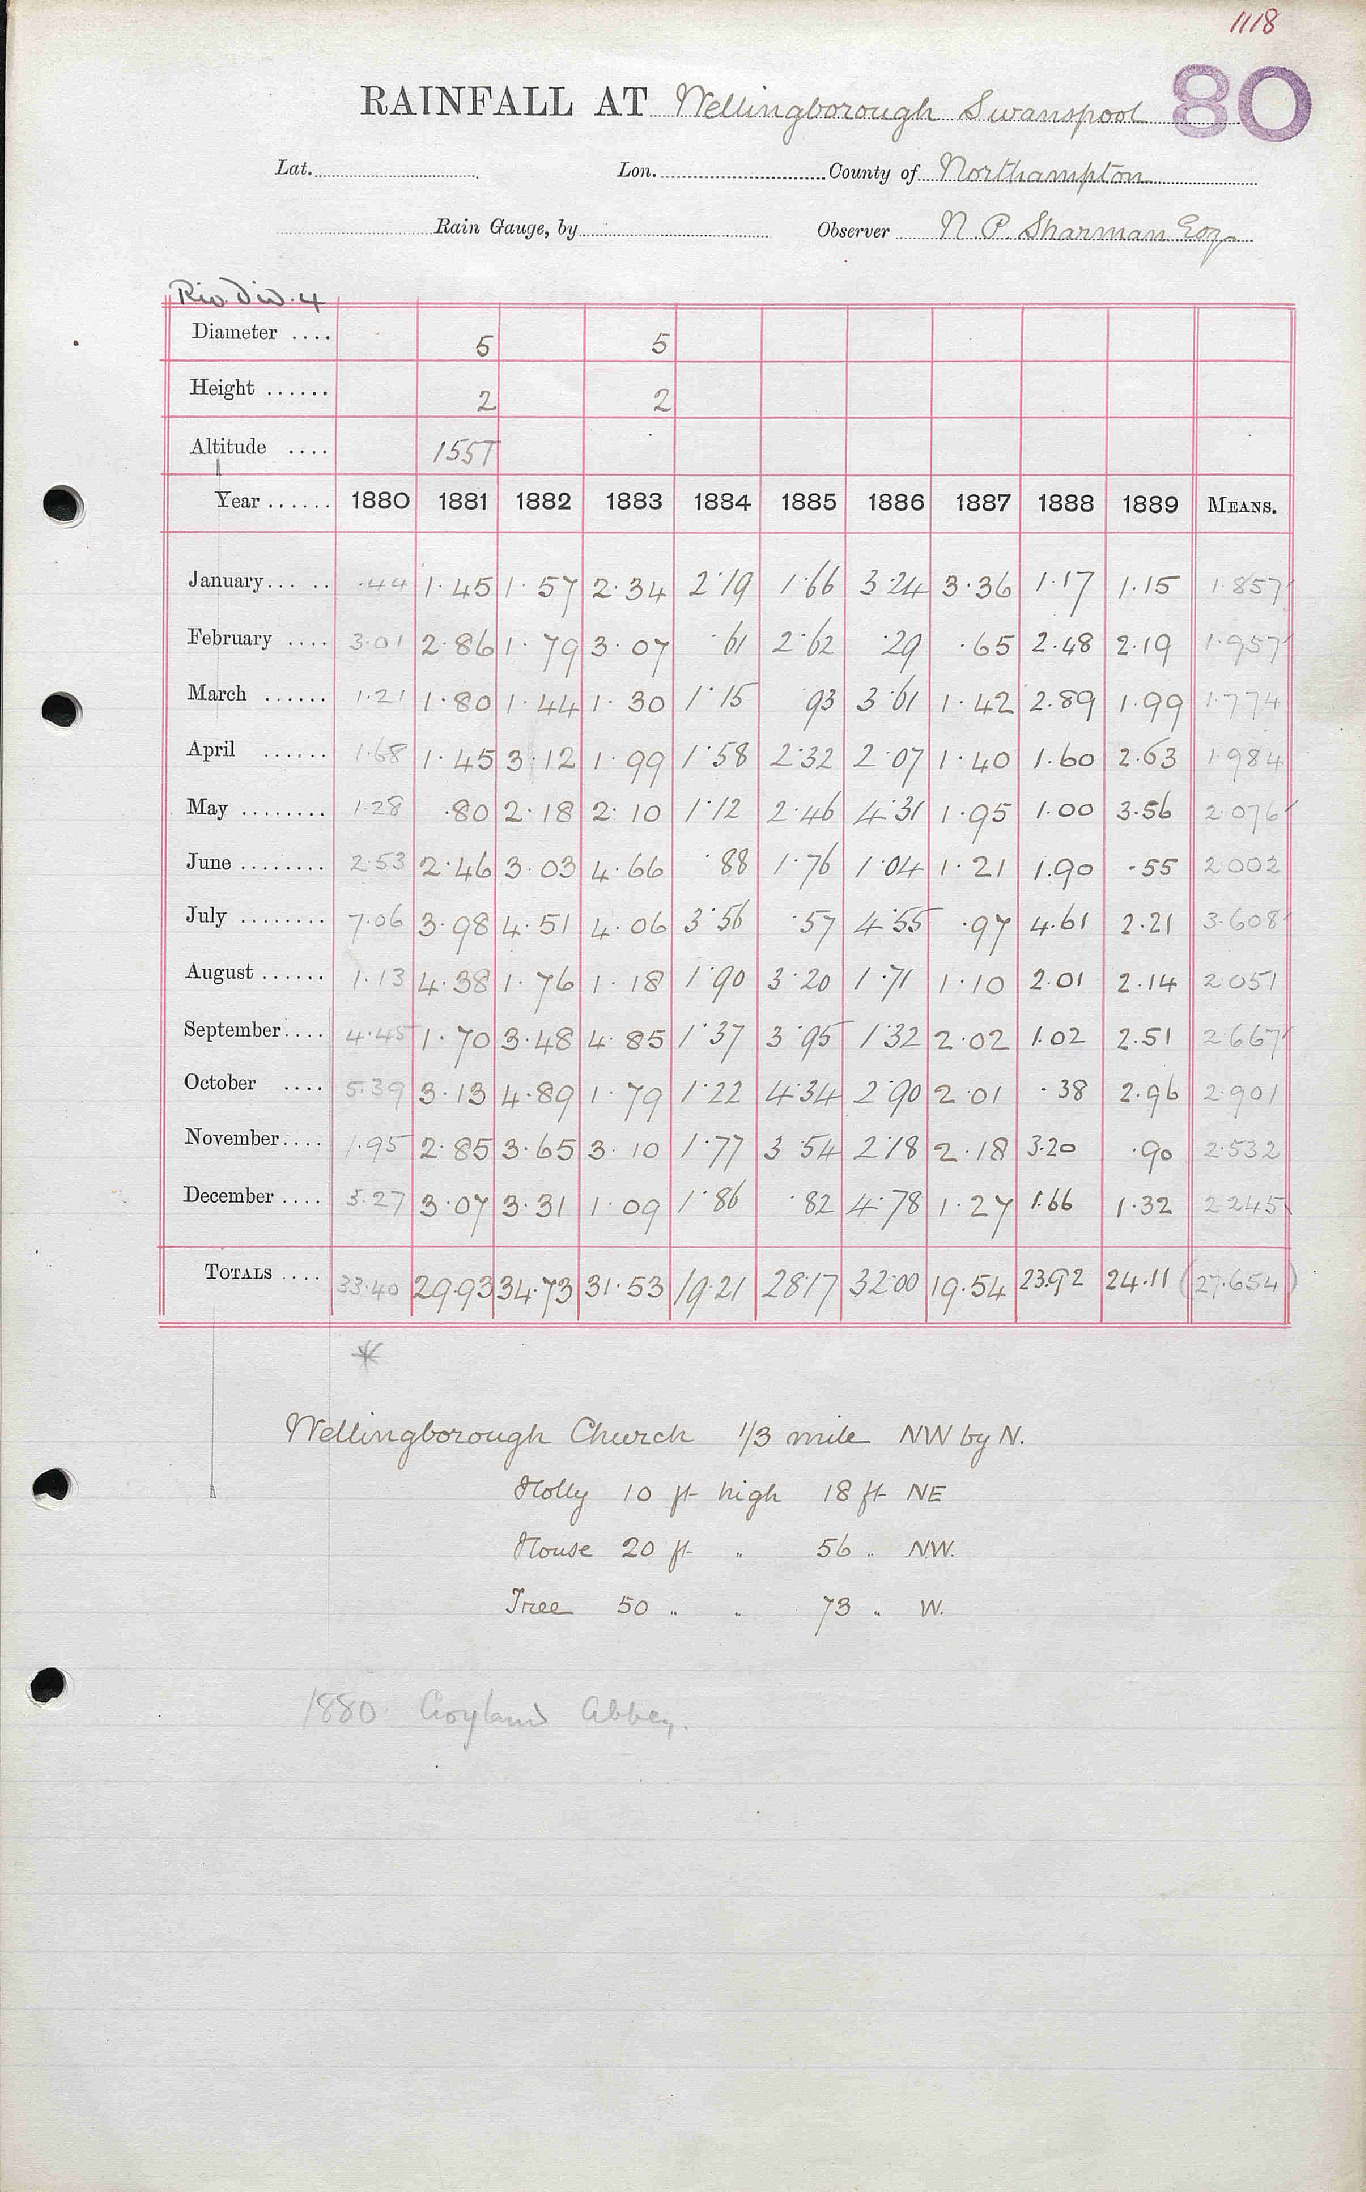 1118
RAINFALL AT Wellingborough Swanspool 80
Lat. Lon. County of Northampton
Rain Gauge, by Observer N. P. Sharman Esq.
Riv. Div. 4
Diameter .... 5 5
Height ...... 2 2
Altitude .... 155T
Year ...... 1880 1881 1882 1883 1884 1885 1886 1887 1888 1889 MEANS.
January... .. .44 1.45 1.57 2.34 2.19 1.66 3.24 3.36 1.17 1.15 1.857
February .... 3.01 2.86 1.79 3.07 .61 2.62 .29 .65 2.48 2.19 1.957
March ...... 1.21 1.80 1.44 1.30 1.15 .93 3.61 1.42 2.89 1.99 1.774
April ...... 1.68 1.45 3.12 1.99 1.58 2.32 2.07 1.40 1.60 2.63 1.984
May ........ 1.28 .80 2.18 2.10 1.12 2.46 4.31 1.95 1.00 3.56 2.076
June ........ 2.53 2.46 3.03 4.66 .88 1.76 1.04 1.21 1.90 .55 2.002
July ........ 7.06 3.98 4.51 4.06 3.56 .57 4.55 .97 4.61 2.21 3.608
August ...... 1.13 4.38 1.76 1.18 1.90 3.20 1.71 1.10 2.01 2.14 2.051
September.... 4.45 1.70 3.48 4.85 1.37 3.95 1.32 2.02 1.02 2.51 2.667
October .... 5.39 3.13 4.89 1.79 1.22 4.34 2.90 2.01 .38 2.96 2.901
November.... 1.95 2.85 3.65 3.10 1.77 3.54 2.18 2.18 3.20 .90 2.532
December .... 3.27 3.07 3.31 1.09 1.86 .82 4.78 1.27 1.66 1.32 2.245
TOTALS .... 33.40 29.93 34.73 31.53 19.21 28.17 32.00 19.54 23.92 24.11 (27.654)
*
Wellingborough Church 1/3 mile NW by N.
Holly 10 ft high 18 ft NE
House 20 ft " 56 " NW.
Tree 50 " " 73 " W.
1880. Croyland Abbey.